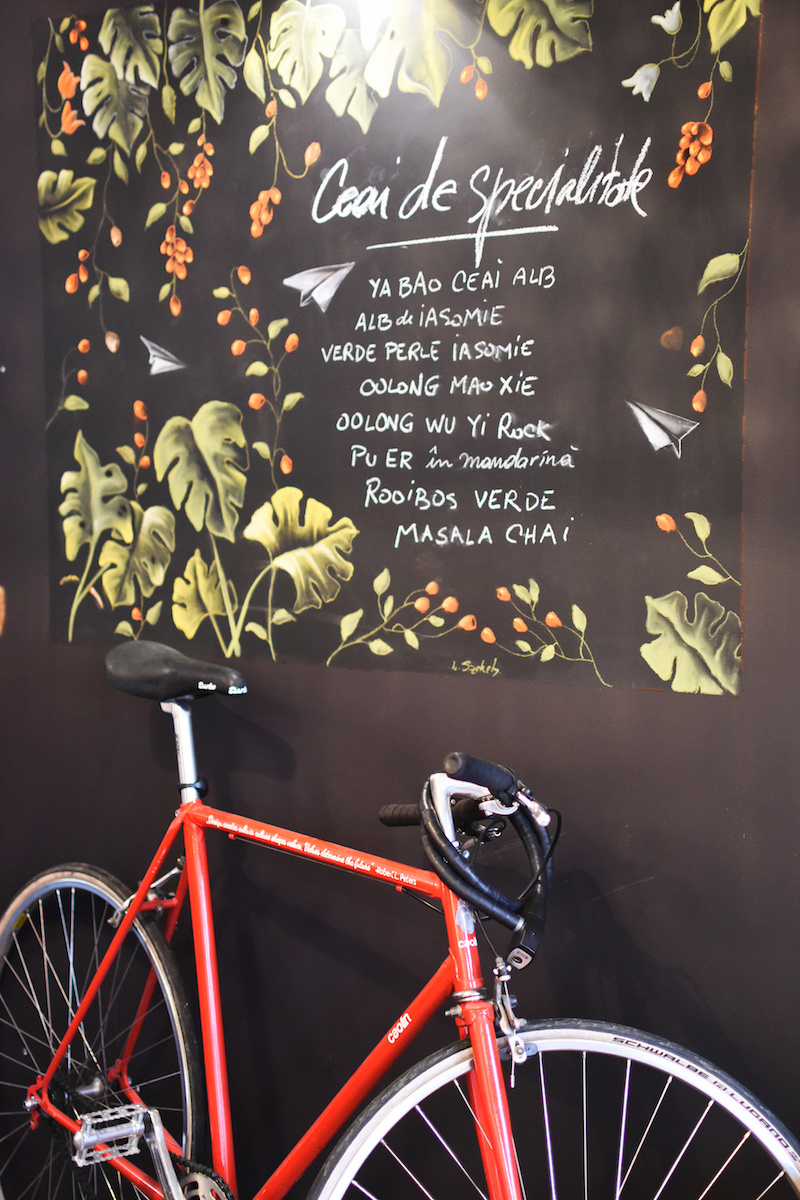 Ceai de specialitate
YA BAO CEAI ALB
ALB de IASOMIE
VERDE PERLE IASOMIE
OOLONG MAO XIE
OOLONG WU YI Rock
PU ER în mandarină
ROOIBOS VERDE
MASALA CHAI
L. Szekely
Turbo
"Design creates culture. Culture shapes values. Values determine the future." Robert L. Peters
coolin
SCHWALBE LUGANO